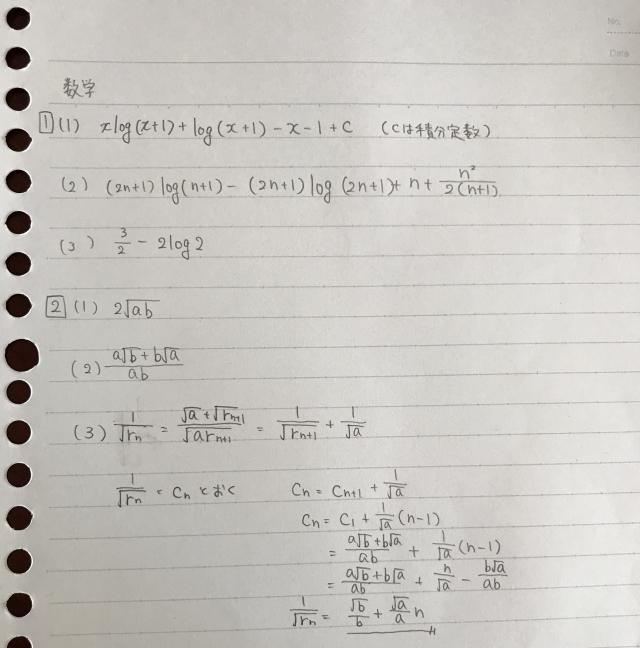 No.
Date
数学
1 (1) xlog(x+1)+log(x+1)-x-1+C (Cは積分定数)
(2) (2n+1)log(n+1)-(2n+1)log(2n+1)+n+\frac{n^2}{2(n+1)}
(3) \frac{3}{2}-2log2
2 (1) 2√ab
(2) \frac{a√b+b√a}{ab}
(3) \frac{1}{√r_n}=\frac{√a+√r_{n+1}}{√ar_{n+1}}=\frac{1}{√r_{n+1}}+\frac{1}{√a}
\frac{1}{√r_n}=C_nとおく C_n=C_{n+1}+\frac{1}{√a}
C_n=C_1+\frac{1}{√a}(n-1)
=\frac{a√b+b√a}{ab}+\frac{1}{√a}(n-1)
=\frac{a√b+b√a}{ab}+\frac{n}{√a}-\frac{b√a}{ab}
\frac{1}{√r_n}=\frac{√b}{b}+\frac{√a}{a}n